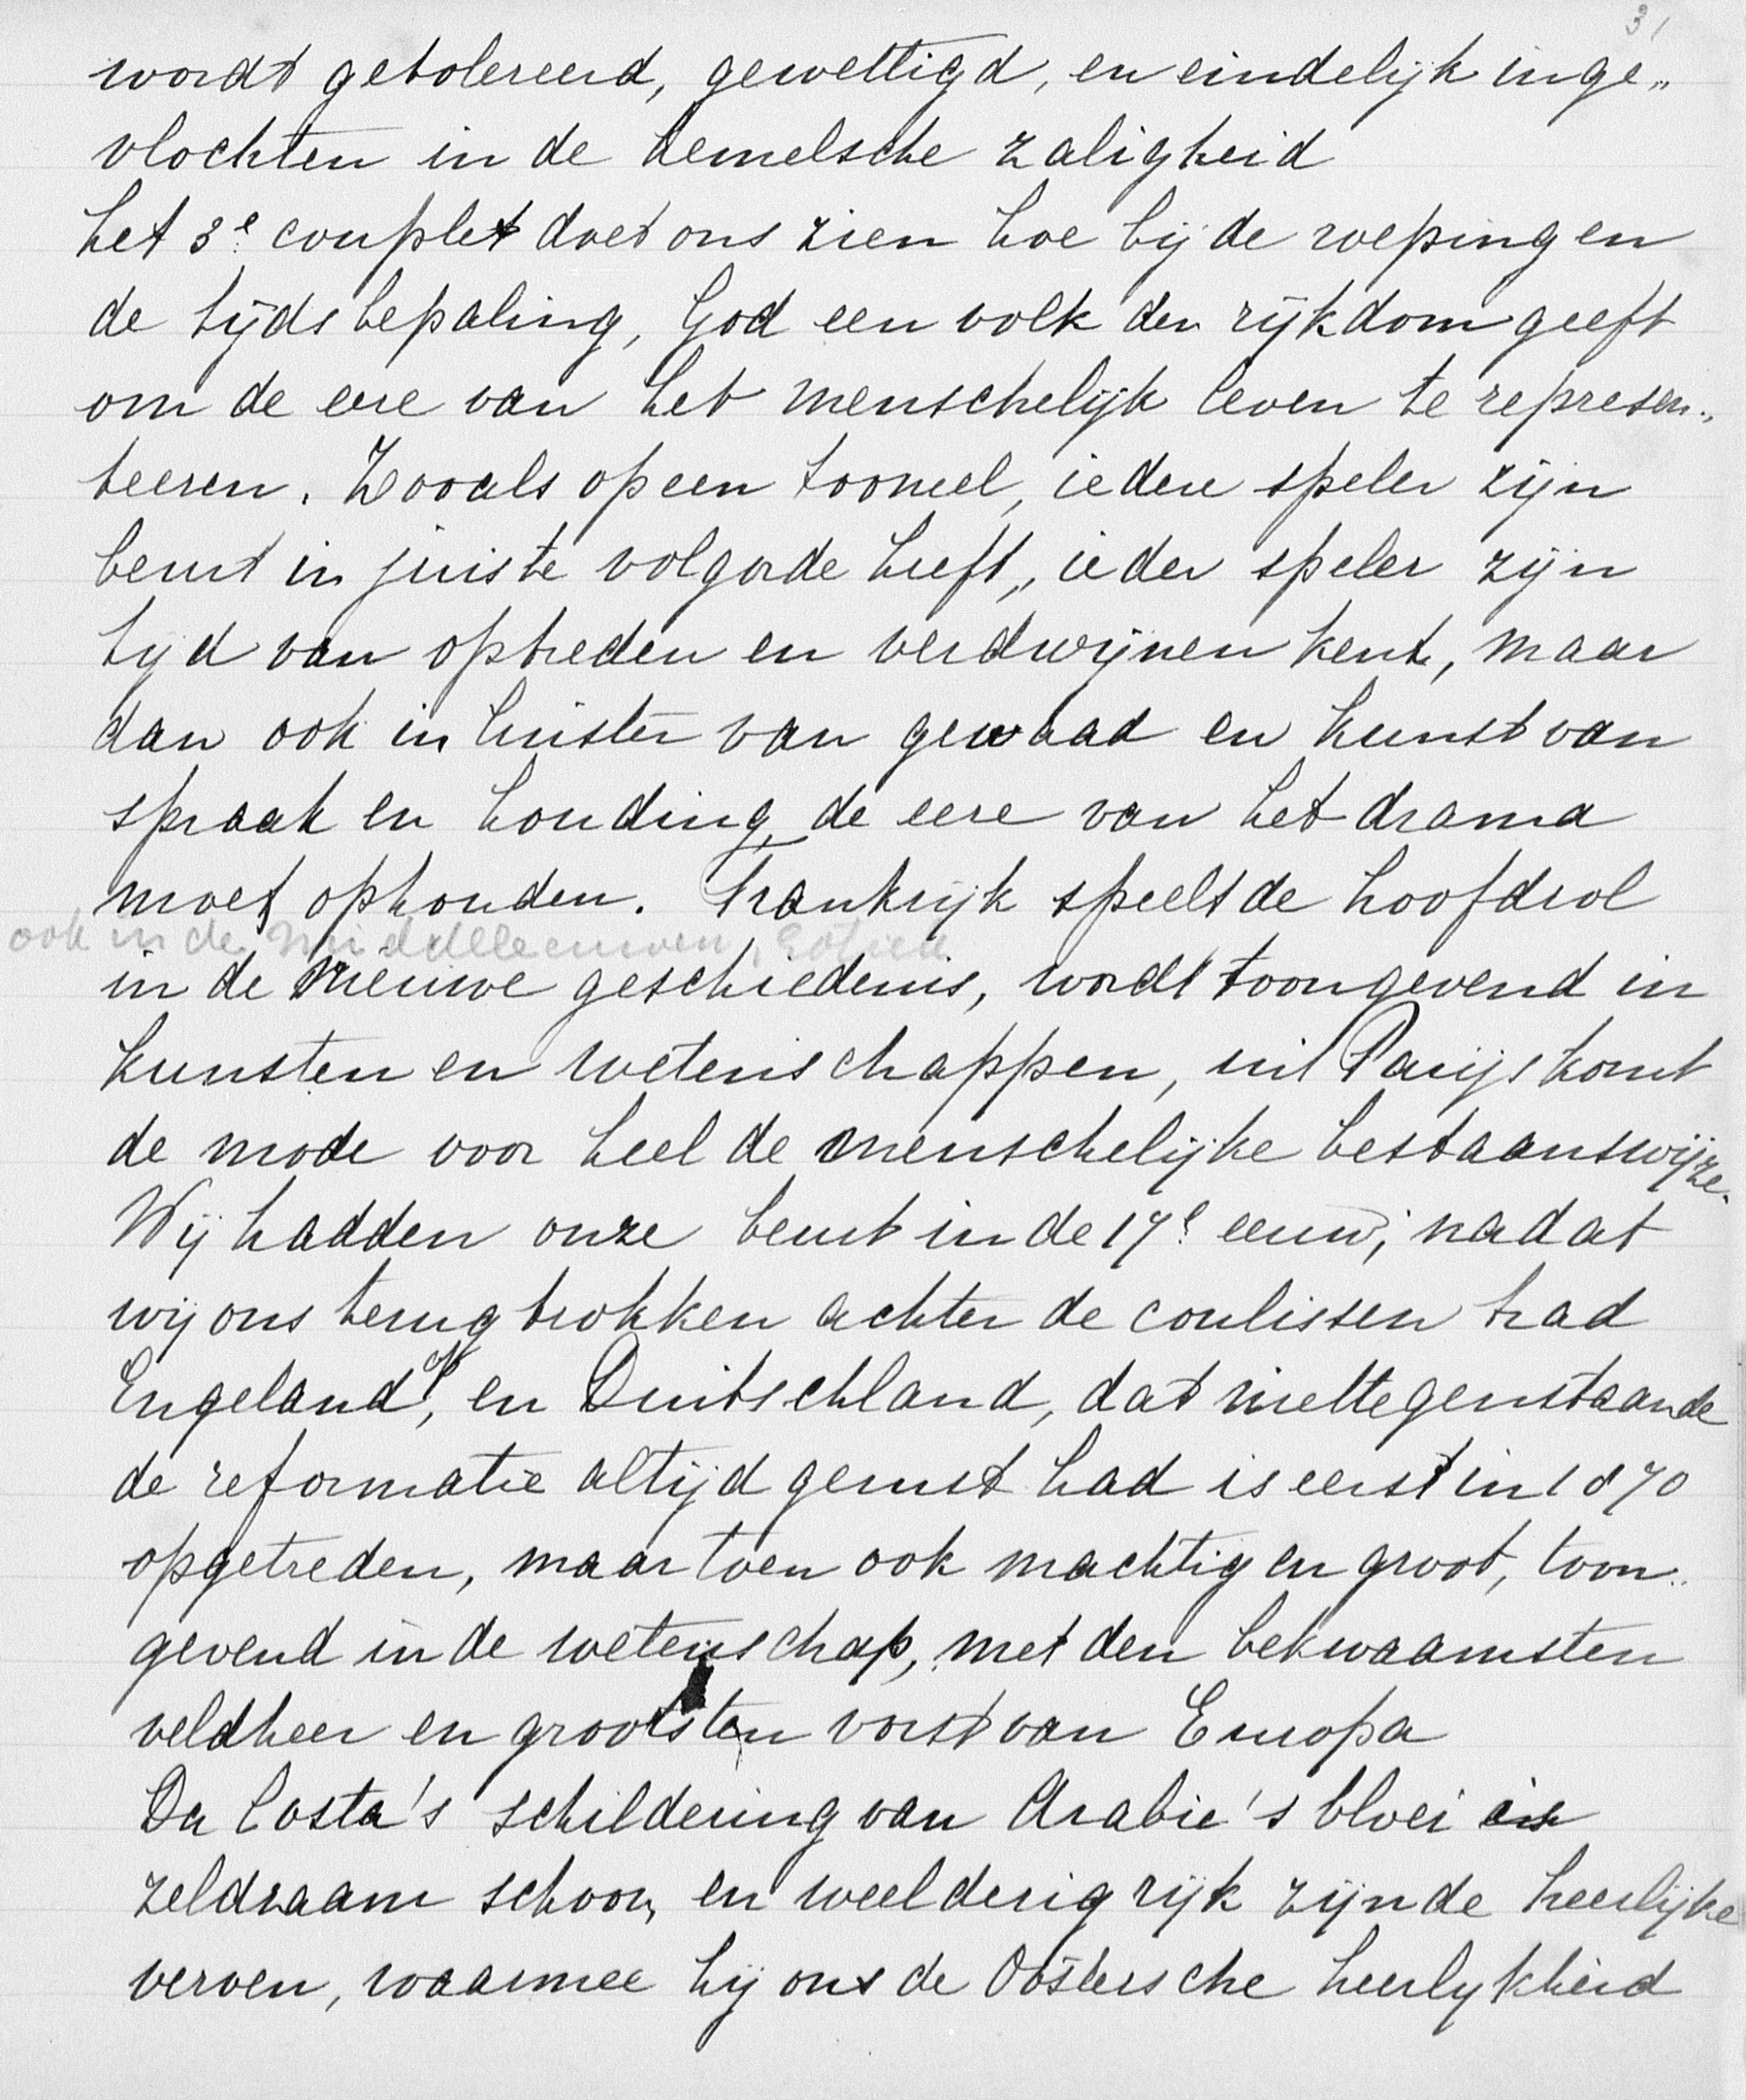 31
wordt getolereerd, gewettigd, en eindelijk inge„
vlochten in de hemelsche zaligheid
het 3e couplet doet ons zien hoe bij de roeping en
de tijdsbepaling, God een volk den rijkdom geeft
om de eere van het menschelijk leven te represen„
teeren. Zooals op een tooneel, iedere speler zijn
beurt in juiste volgorde heeft, ieder speler zijn
tijd van optreden en verdwijnen kent, maar
dan ook in luister van gewaad en kunst van
spraak en houding, de eere van het drama
moet ophouden. Frankrijk speelt de hoofdrol
ook in de Middeleeuwen, Gotiek
in de Nieuwe geschiedenis, wordt toongevend in
kunsten en wetenschappen, uit Parijs komt
de mode voor heel de menschelijke bestaanswijze.
Wij hadden onze beurt in de 17e eeuw, nadat
wij ons terug trokken achter de coulissen trad
Engeland op, en Duitschland, dat niettegenstaande
de reformatie altijd gerust had is eerst in 1870
opgetreden, maar toen ook machtig en groot, toon„
gevend in de wetenschap, met den bekwaamsten
veldheer en grootsten vorst van Europa
Da Costa's schildering van Arabie's bloei is
zeldzaam schoon, en weelderig rijk zijn de heerlijke
verven, waarmee hij ons de Oostersche heerlykheid